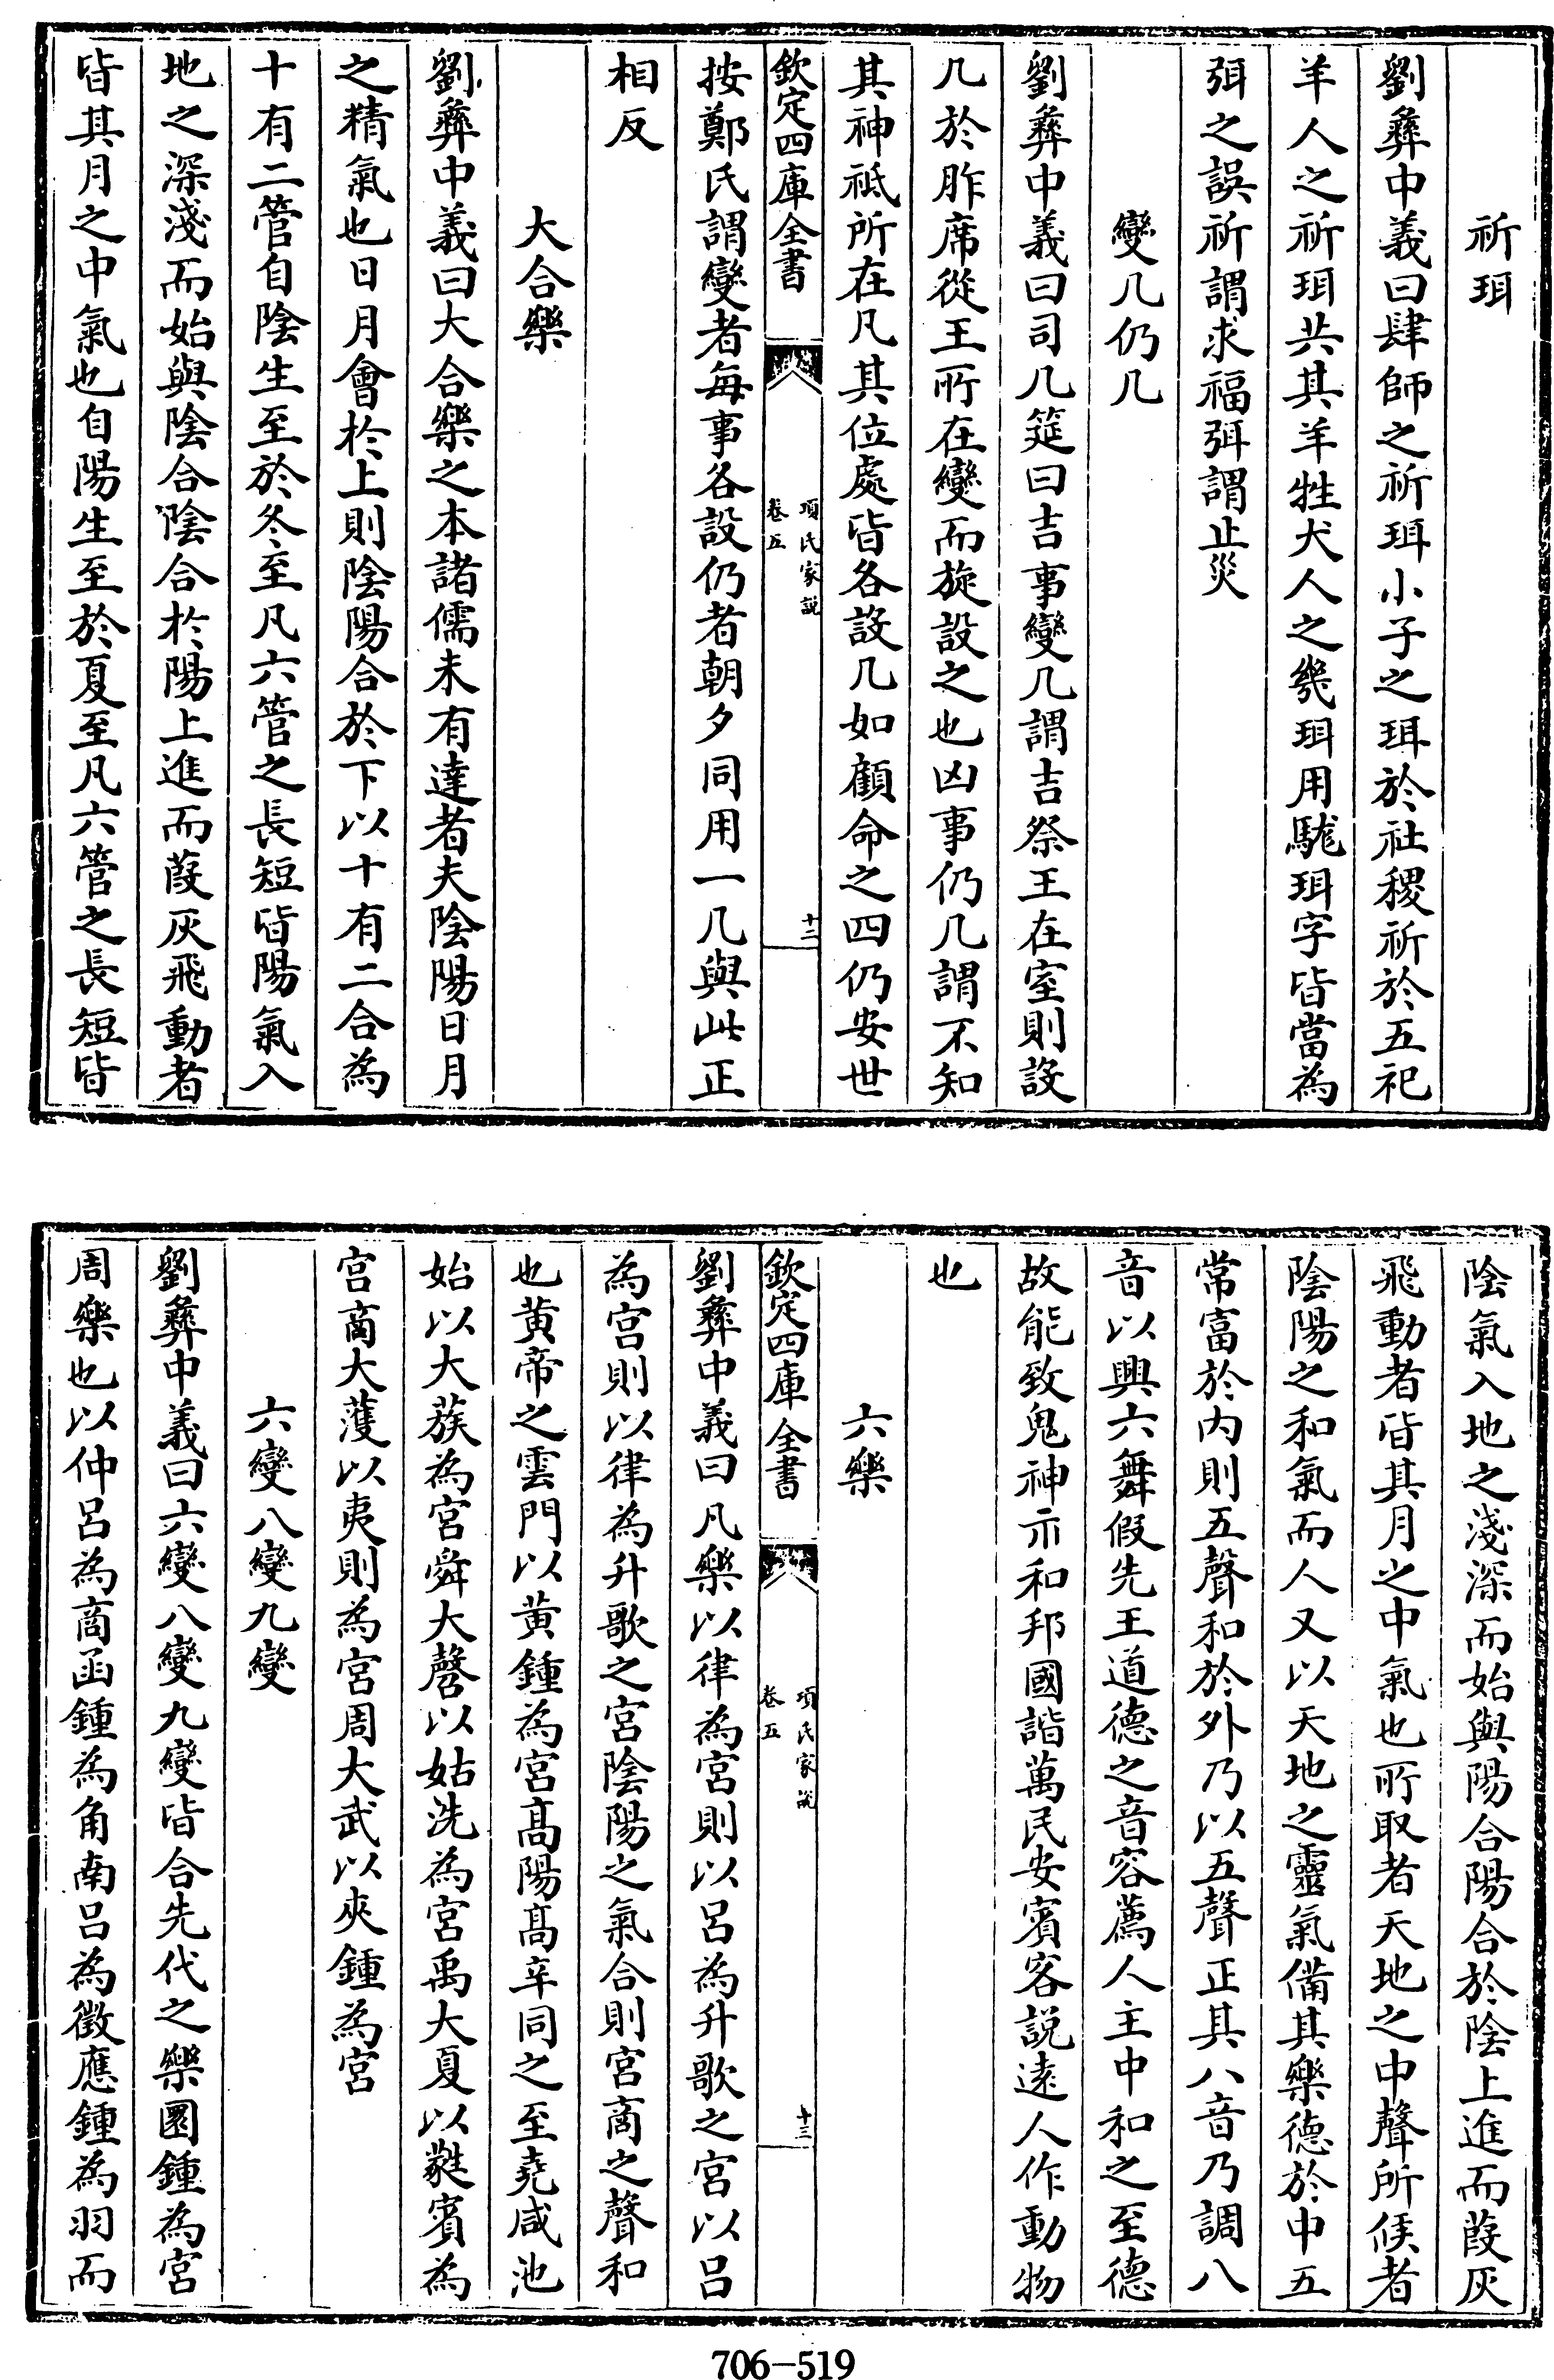 祈珥
劉彝中義曰肆師之祈珥小子之珥於社稷祈於五祀
羊人之祈珥共其羊牲犬人之幾珥用駹珥字皆當為
弭之誤祈謂求福弭謂止災
變几仍几
劉彝中義曰司几筵曰吉事變几謂吉祭王在室則設
几於胙席從王所在變而旋設之也凶事仍几謂不知
其神祗所在凡其位處皆各設几如顧命之四仍安世
欽定四庫全書
項氏家說
卷五
十二
按鄭氏謂變者每事各設仍者朝夕同用一几與此正
相反
大合樂
劉彝中義曰大合樂之本諸儒未有達者夫陰陽日月
之精氣也日月會於上則陰陽合於下以十有二合為
十有二管自陰生至於冬至凡六管之長短皆陽氣入
地之深淺而始與陰合陰合於陽上進而葭灰飛動者
皆其月之中氣也自陽生至於夏至凡六管之長短皆
陰氣入地之淺深而始與陽合陽合於陰上進而葭灰
飛動者皆其月之中氣也所取者天地之中聲所候者
陰陽之和氣而人又以天地之靈氣備其樂德於中五
常富於内則五聲和於外乃以五聲正其八音乃調八
音以興六舞假先王道德之音容薦人主中和之至德
故能致鬼神示和邦國諧萬民安賓客說遠人作動物
也
六樂
欽定四庫全書
項氏家說
卷五
十三
劉彝中義曰凡樂以律為宮則以呂為升歌之宮以呂
為宮則以律為升歌之宮陰陽之氣合則宮商之聲和
也黄帝之雲門以黄鍾為宮高陽高辛同之至堯咸池
始以大蔟為宮舜大磬以姑洗為宮禹大夏以蕤賓為
宮商大濩以夷則為宮周大武以夾鍾為宮
六變八變九變
劉彝中義曰六變八變九變皆合先代之樂圜鍾為宮
周樂也以仲呂為商函鍾為角南呂為徵應鍾為羽而
706-519